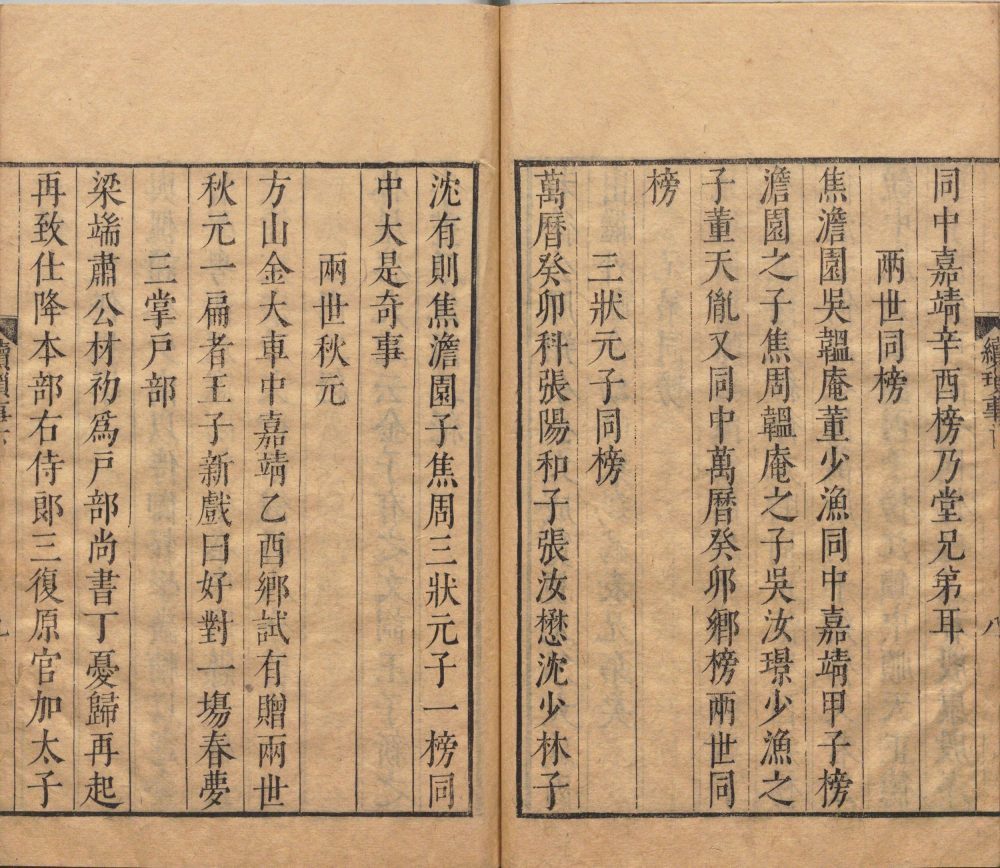 同中嘉靖辛酉榜乃堂兄弟耳
兩世同榜
焦澹園吳韞庵董少漁同中嘉靖甲子榜
澹園之子焦周韞庵之子吳汝璟少漁之
子董天胤又同中萬曆癸卯鄉榜兩世同
榜
三狀元子同榜
萬曆癸卯科張陽和子張汝懋沈少林子
沈有則焦澹園子焦周三狀元子一榜同
中大是奇事
兩世秋元
方山金大車中嘉靖乙酉鄉試有贈兩世
秋元一扁者王子新戲曰好對一場春夢
三掌戶部
梁端肅公材初爲戶部尚書丁憂歸再起
再致仕降本部右侍郎三復原官加太子
八
九